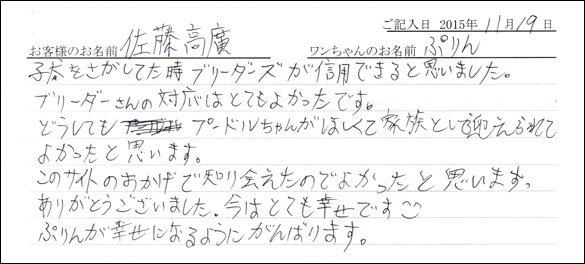 ご記入日 2015年 11月 19日
お客様のお名前 佐藤高廣 ワンちゃんのお名前 ぷりん
子犬をさがしてた時ブリーダーズが信用できると思いました。
ブリーダーさんの対応はとてもよかったです。
どうしても プードルちゃんがほしくて家族として迎えられて
よかったと思います。
このサイトのおかげで知り会えたのでよかったと思います。
ありがとうございました。今はとても幸せです
ぷりんが幸せになるようにがんばります。